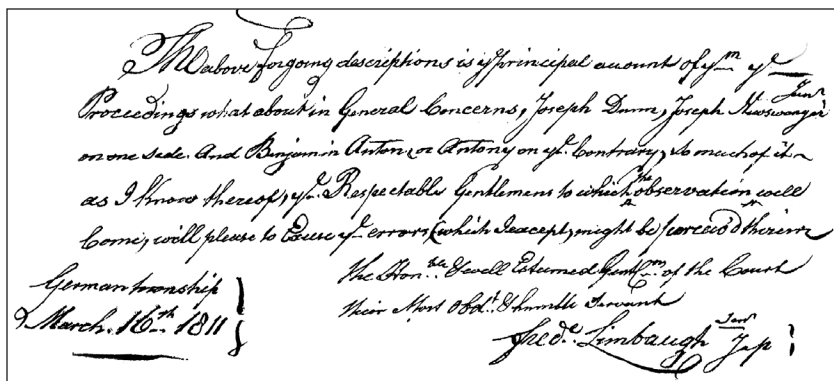 The above forgoing descriptions is ye principal account of ym ye
Proceedings what about in General Concerns, Joseph Dunn, Joseph Niswanger Junr
on one side. And Benjamin Anton, or Antony on ye Contrary, So much of it
as I know thereof, ye Respectable Gentlemens to which the observation will
Come, will please to Excuse ye errors (which I except, might be therein
The Honble & well Estumed Gentlmn of the Court
Their Most Obdt & humble Servant
Fredk Limbaugh Senr J p
Germantownship
March. 16th 1811